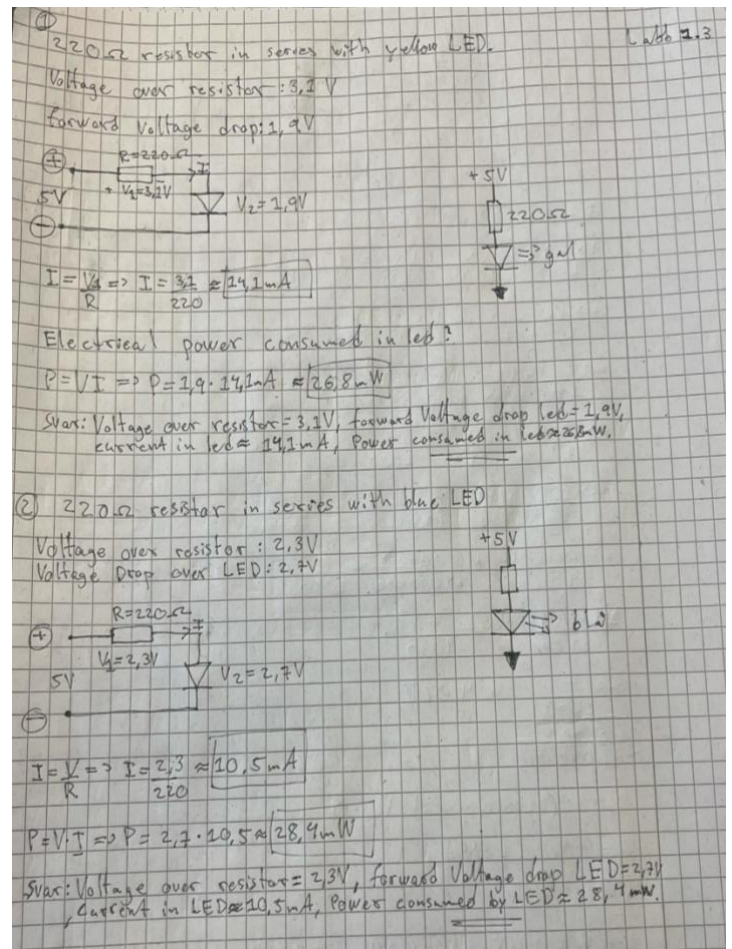 ①
Labb 1.3
220Ω resistor in series with yellow LED.
Voltage over resistor: 3,1 V
forward Voltage drop: 1,9V
+ R=220Ω I
5V + V1=3,1V V2=1,9V
-
+5V
220Ω
=> gul
I = V1/R => I = 3,1/220 ≈ 14,1mA
Electrical power consumed in led?
P=VI => P=1,9·14,1mA ≈ 26,8mW
Svar: Voltage over resistor = 3,1V, forward Voltage drop led = 1,9V,
current in led ≈ 14,1mA, Power consumed in led ≈ 26,8mW.
② 220Ω resistor in series with blue LED
Voltage over resistor: 2,3V
Voltage Drop over LED: 2,7V
+5V
=> blå
R=220Ω I
+
V1=2,3V
5V V2=2,7V
-
I = V/R => I = 2,3/220 ≈ 10,5mA
P=V·I => P = 2,7·10,5 ≈ 28,4mW
Svar: Voltage over resistor = 2,3V, forward Voltage drop LED=2,7V
, Current in LED ≈ 10,5mA, Power consumed by LED ≈ 28,4mW.